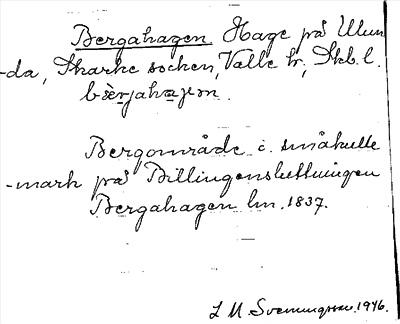 Bergahagen Hage på Ulun
-da, Skarke socken, Valle hr, Skb. l.
bærjahajen.
Bergområde i småkulle
-mark på Billingensluttningen
Bergahagen lm. 1837.
L M. Svenungsson. 1946.